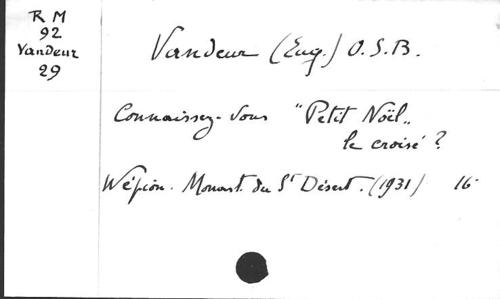 R M
92
Vandeur
29
Vandeur (Eug.) O.S.B.
Connaissez-vous "Petit Noël"
le croisé ?
Wépion. Monast. du St Désert. (1931) 16°